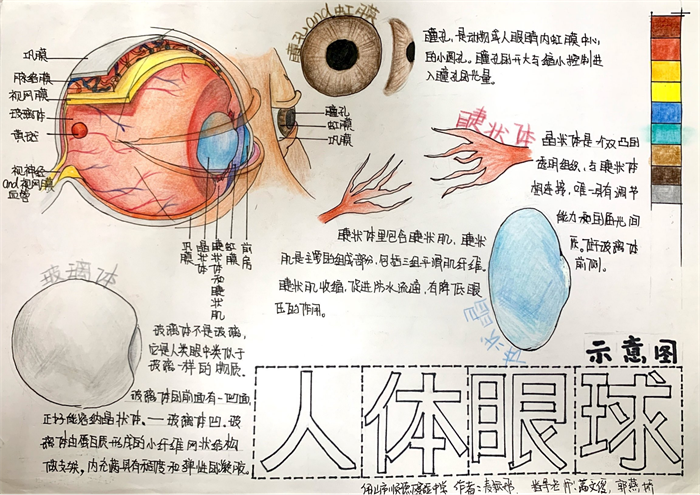 瞳孔and虹膜
瞳孔,是动物或人眼睛内虹膜中心
的小圆孔。瞳孔的开大与缩小控制进
入瞳孔的光量。
巩膜
脉络膜
视网膜
玻璃体
黄斑
视神经
and视网膜
血管
瞳孔
虹膜
巩膜
巩膜
晶状体
睫状体和睫状肌
虹膜
前房
睫状体
晶状体是一个双凸面
透明组织,与睫状体
相连接,唯一具有调节
能力和屈光间
质。位于玻璃体
前侧。
睫状体里包含睫状肌,睫状
肌是主要的组成部分,包括三组平滑肌纤维。
睫状肌收缩,促进房水流通,有降低眼
压的作用。
晶状体
玻璃体
玻璃体不是玻璃,
它是人类眼中类似于
玻璃一样的物质。
玻璃体的前面有一凹面,
正好能容纳晶状体。——玻璃体凹。玻
璃体由蛋白质形成的小纤维网状结构
做支架,内充满具有粘度和弹性的凝胶。
示意图
人体眼球
作者:
指导老师: